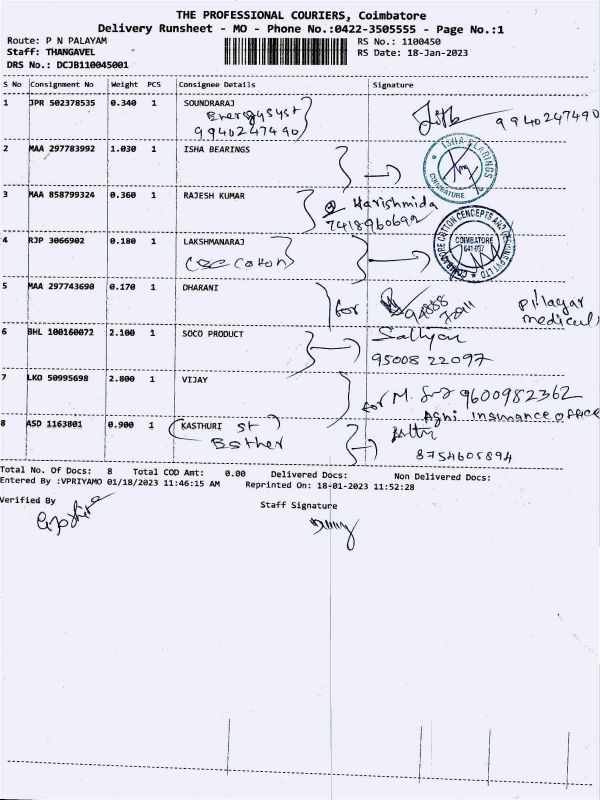 THE PROFESSIONAL COURIERS, Coimbatore
Delivery Runsheet - MO - Phone No.:0422-3505555 - Page No.:1
Route: P N PALAYAM
RS No.: 1100450
Staff: THANGAVEL
RS Date: 18-Jan-2023
DRS No.: DCJB110045001
S No Consignment No Weight PCS Consignee Details Signature
1 JPR 502378535 0.340 1 SOUNDRARAJ
Energy Syst
9940247490
9940247490
2 MAA 297783992 1.030 1 ISHA BEARINGS
ISHA BEARINGS
COIMBATORE
3 MAA 858799324 0.360 1 RAJESH KUMAR
Harishmida
7418960692
4 RJP 3066902 0.180 1 LAKSHMANARAJ
CCC Cotton
COIMBATORE COTTON CENCEPTS AND DESIGNS PVT LTD
COIMBATORE
641 037
5 MAA 297743690 0.170 1 DHARANI
for
Pillayar
medicul,
6 BHL 100160072 2.100 1 SOCO PRODUCT
Sathyan
95008 22097
7 LKO 50995698 2.800 1 VIJAY
for M. 9600982362
Agni Insurance office
8 ASD 1163801 0.900 1 KASTHURI St
Esther
8754605894
Total No. Of Docs: 8 Total COD Amt: 0.00 Delivered Docs: Non Delivered Docs:
Entered By :VPRIYAMO 01/18/2023 11:46:15 AM Reprinted On: 18-01-2023 11:52:28
Verified By
Staff Signature